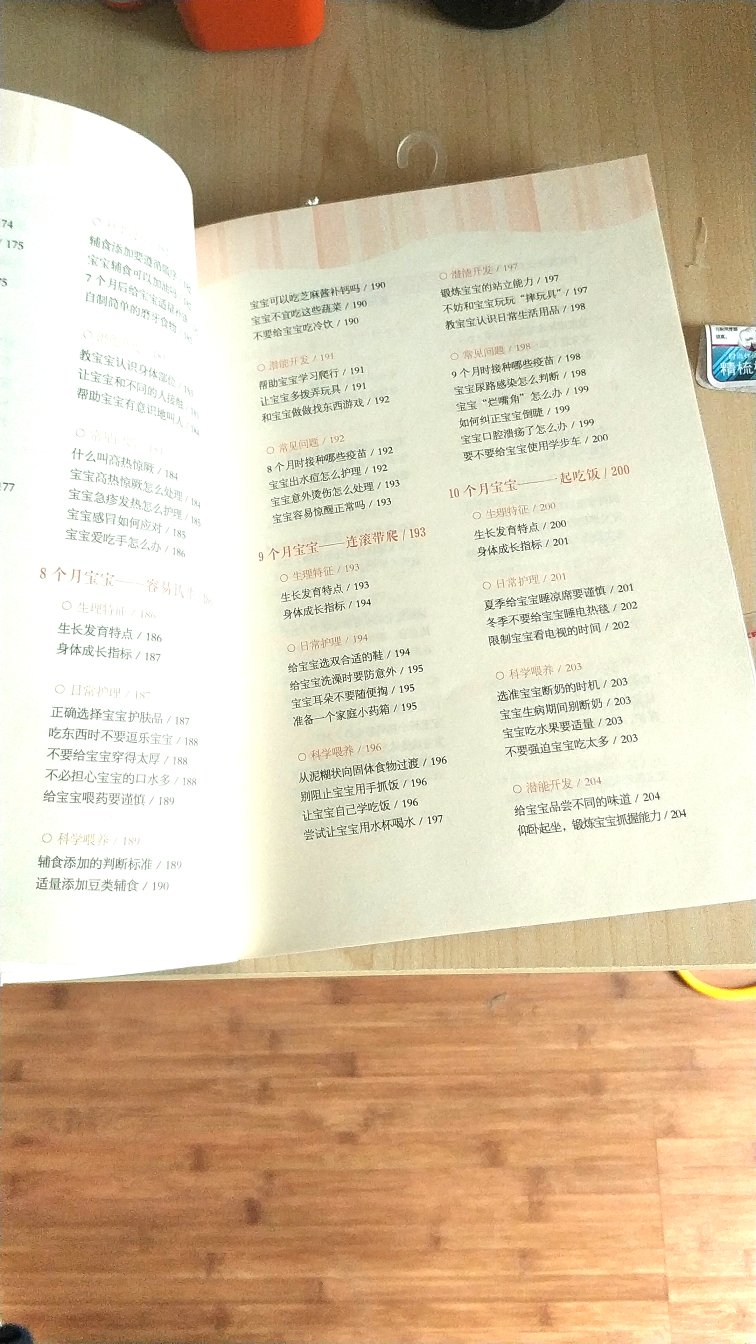 74
/ 175
75
177
辅食添加要遵循
宝宝辅食可以加
7个月后给宝宝适量
自制简单的磨牙食物
教宝宝认识身体部位
让宝宝和不同的人接触
帮助宝宝有意识地叫人
什么叫高热惊厥 / 184
宝宝高热惊厥怎么处理 / 184
宝宝急疹发热怎么护理 / 185
宝宝感冒如何应对 / 185
宝宝爱吃手怎么办 / 186
8个月宝宝——容易认生
○ 生理特征 / 186
生长发育特点 / 186
身体成长指标 / 187
○ 日常护理 / 187
正确选择宝宝护肤品 / 187
吃东西时不要逗乐宝宝 / 188
不要给宝宝穿得太厚 / 188
不必担心宝宝的口水多 / 188
给宝宝喂药要谨慎 / 189
○ 科学喂养 / 189
辅食添加的判断标准 / 189
适量添加豆类辅食 / 190
宝宝可以吃芝麻酱补钙吗 / 190
宝宝不宜吃这些蔬菜 / 190
不要给宝宝吃冷饮 / 190
○ 潜能开发 / 191
帮助宝宝学习爬行 / 191
让宝宝多拨弄玩具 / 191
和宝宝做做找东西游戏 / 192
○ 常见问题 / 192
8个月时接种哪些疫苗 / 192
宝宝出水痘怎么护理 / 192
宝宝意外烫伤怎么处理 / 193
宝宝容易惊醒正常吗 / 193
9个月宝宝——连滚带爬 / 193
○ 生理特征 / 193
生长发育特点 / 193
身体成长指标 / 194
○ 日常护理 / 194
给宝宝选双合适的鞋 / 194
给宝宝洗澡时要防意外 / 195
宝宝耳朵不要随便掏 / 195
准备一个家庭小药箱 / 195
○ 科学喂养 / 196
从泥糊状向固体食物过渡 / 196
别阻止宝宝用手抓饭 / 196
让宝宝自己学吃饭 / 196
尝试让宝宝用水杯喝水 / 197
○ 潜能开发 / 197
锻炼宝宝的站立能力 / 197
不妨和宝宝玩玩“摔玩具” / 197
教宝宝认识日常生活用品 / 198
○ 常见问题 / 198
9个月时接种哪些疫苗 / 198
宝宝尿路感染怎么判断 / 198
宝宝“烂嘴角”怎么办 / 199
如何纠正宝宝倒睫 / 199
宝宝口腔溃疡了怎么办 / 199
要不要给宝宝使用学步车 / 200
10个月宝宝——一起吃饭 / 200
○ 生理特征 / 200
生长发育特点 / 200
身体成长指标 / 201
○ 日常护理 / 201
夏季给宝宝睡凉席要谨慎 / 201
冬季不要给宝宝睡电热毯 / 202
限制宝宝看电视的时间 / 202
○ 科学喂养 / 203
选准宝宝断奶的时机 / 203
宝宝生病期间别断奶 / 203
宝宝吃水果要适量 / 203
不要强迫宝宝吃太多 / 203
○ 潜能开发 / 204
给宝宝品尝不同的味道 / 204
仰卧起坐，锻炼宝宝抓握能力 / 204
精梳